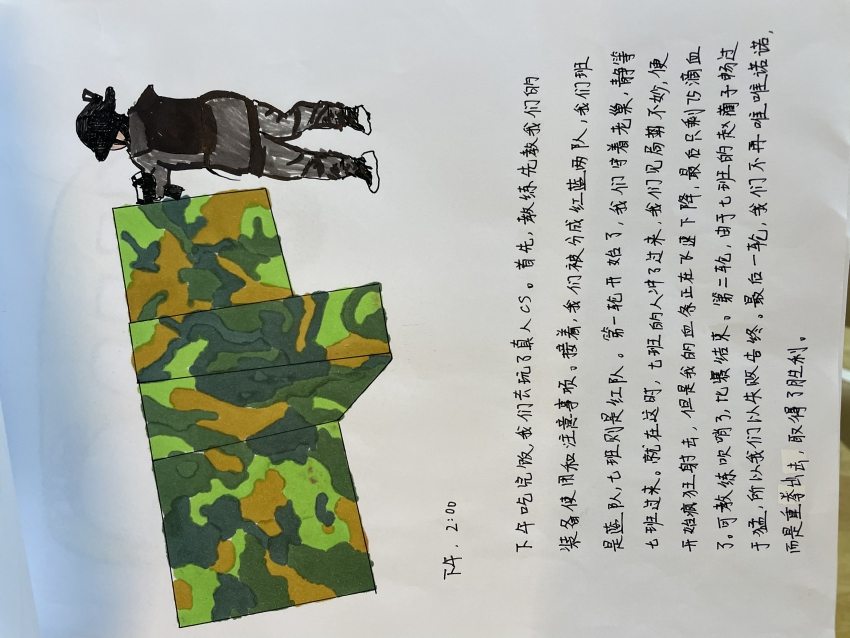 下午.2:00
下午吃完饭,我们去玩了真人CS。首先,教练先教我们的
装备使用和注意事项。接着,我们被分成红蓝两队,我们班
是蓝队,七班则是红队。第一轮开始了,我们守着老巢,静等
七班过来。就在这时,七班的人冲了过来,我们见局势不妙,便
开始疯狂射击,但是我的血条正在飞速下降,最后只剩75滴血
了。可教练吹哨了,比赛结束。第二轮,由于七班的赵商于畅过
于猛,所以我们以失败告终。最后一轮,我们不再唯唯诺诺,
而是重拳出击,取得了胜利。